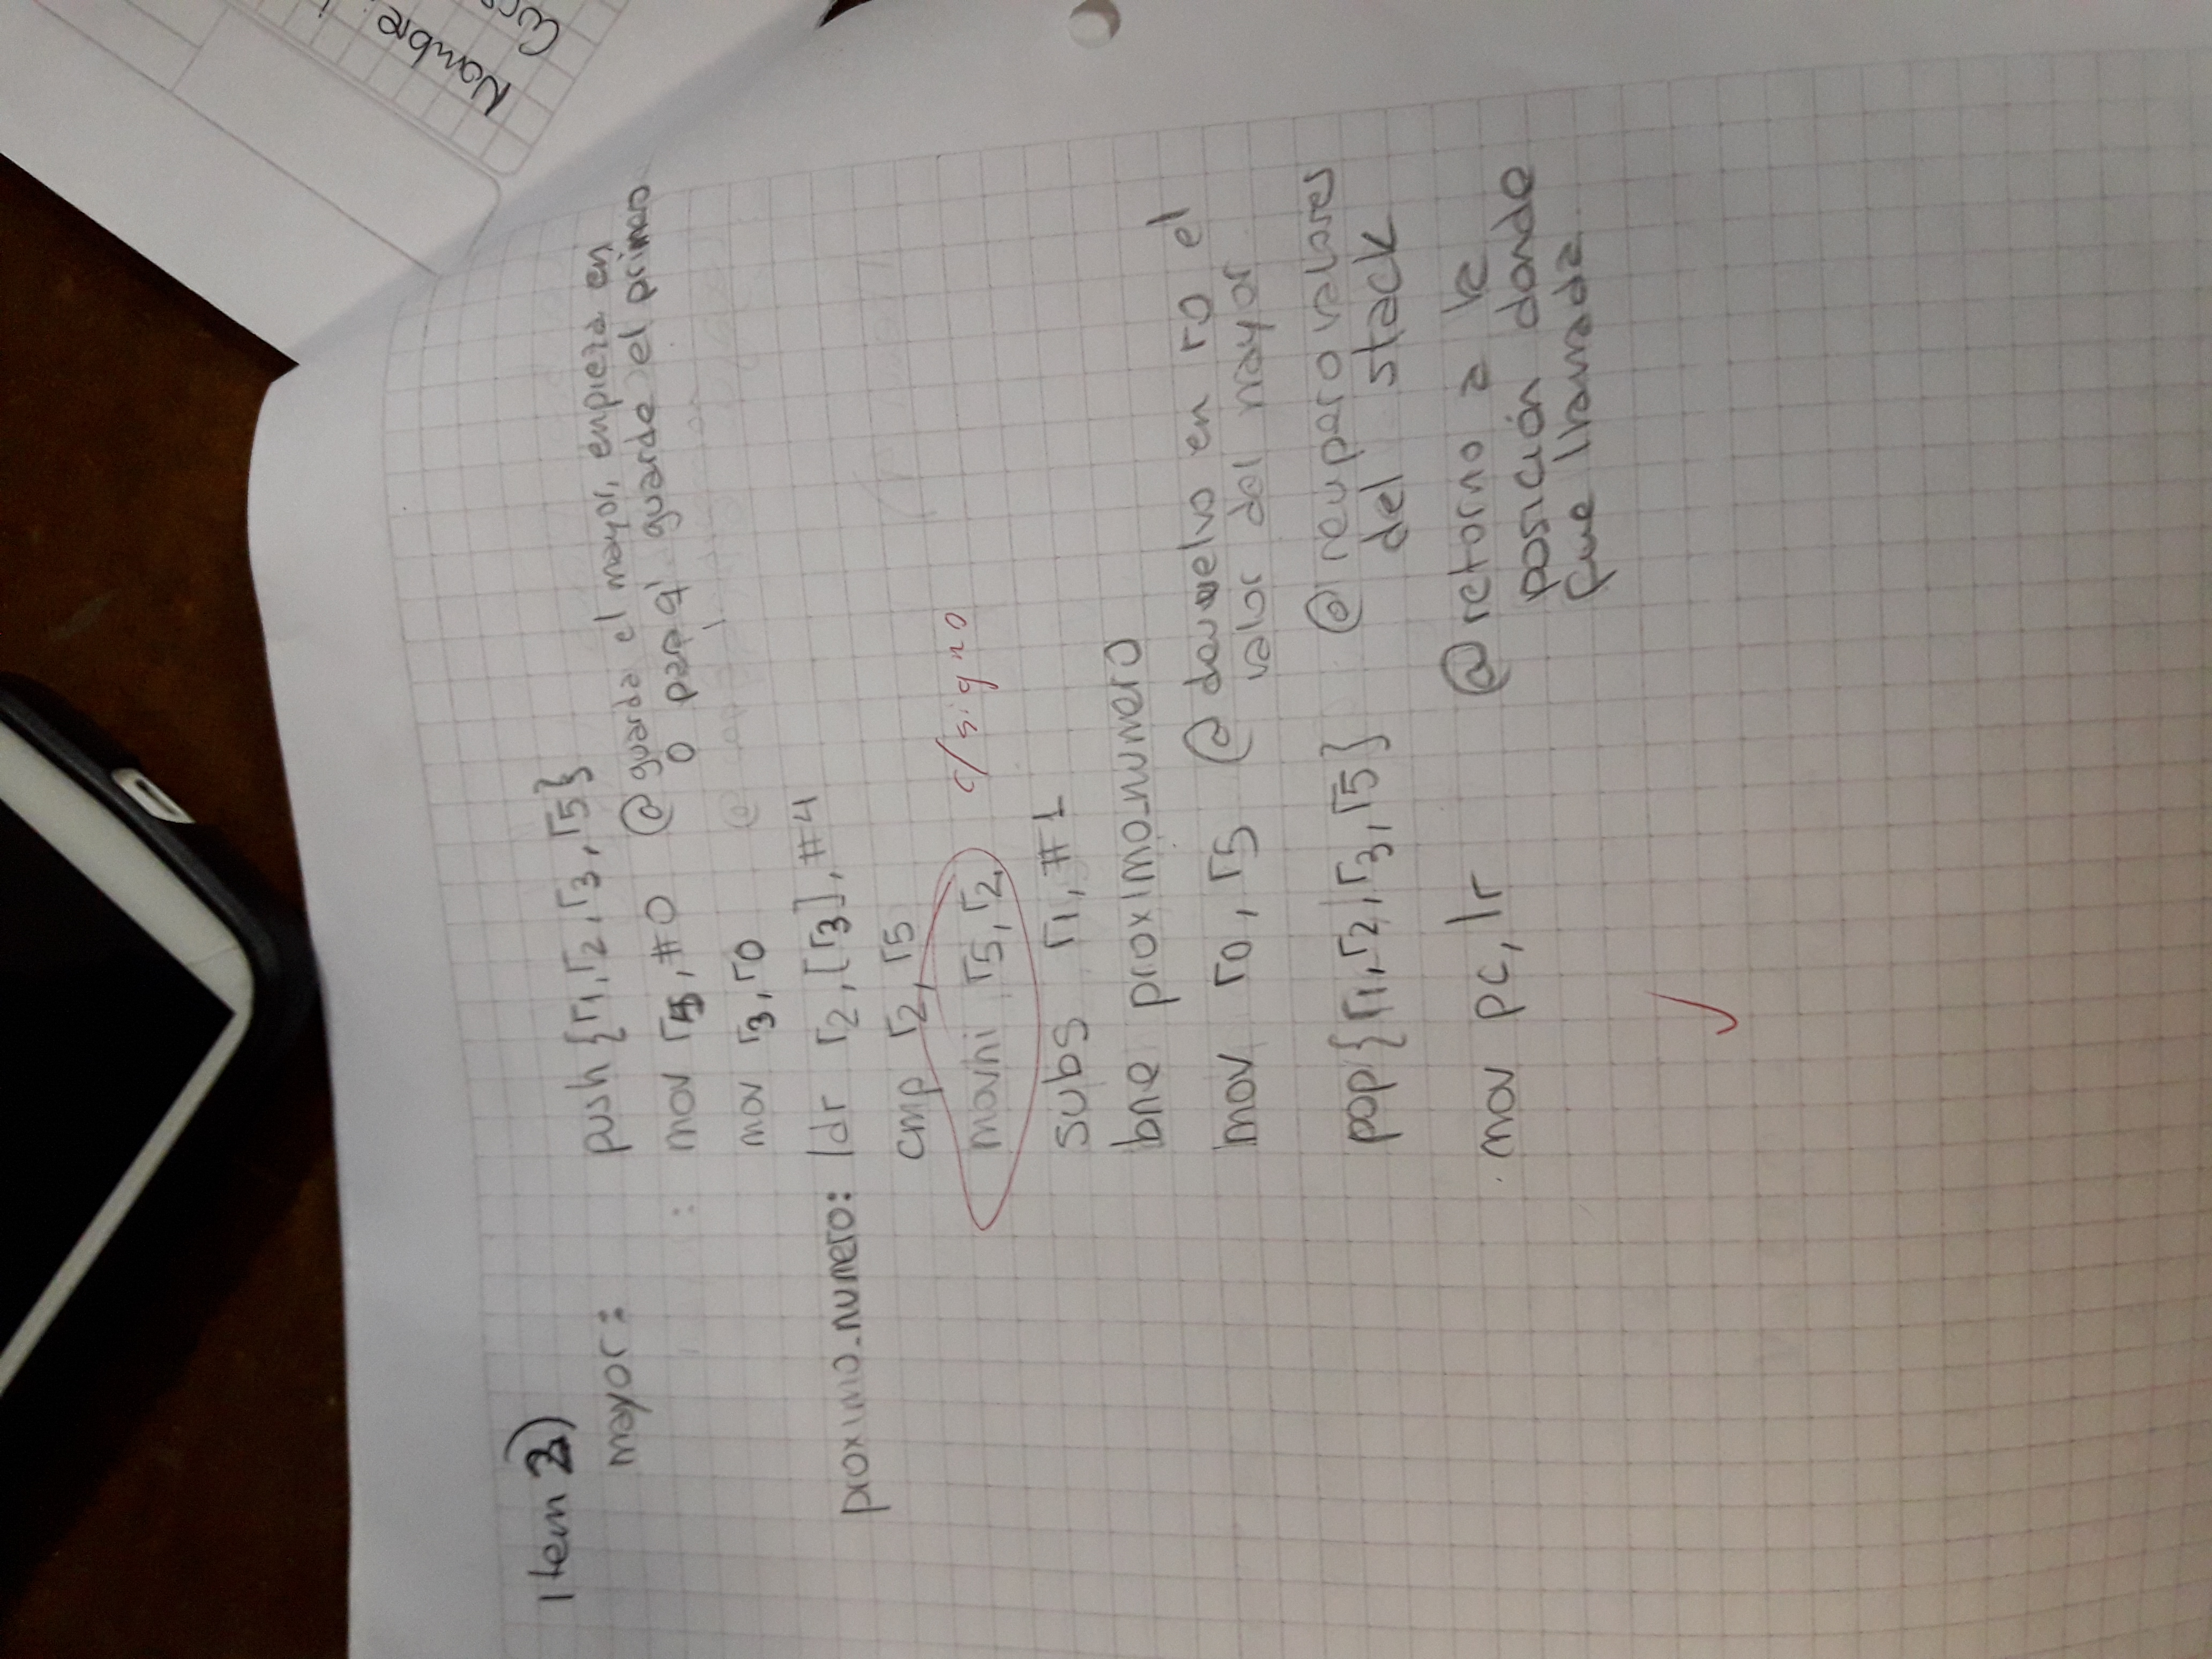 Item 2)
mayor: push {r1, r2, r3, r5}
: mov r5, #0 @ guarda el mayor, empieza en
0 para q' guarde el primero
mov r3, r0 @
proximo_numero: ldr r2, [r3], #4
cmp r2, r5
movhi r5, r2 c/signo
subs r1, #1
bne proximo_numero
mov r0, r5 @ devuelvo en r0 el
valor del mayor
pop {r1, r2, r3, r5} @ recupero valores
del stack
mov pc, lr @ retorno a la
posición donde
fue llamada
Nombre: